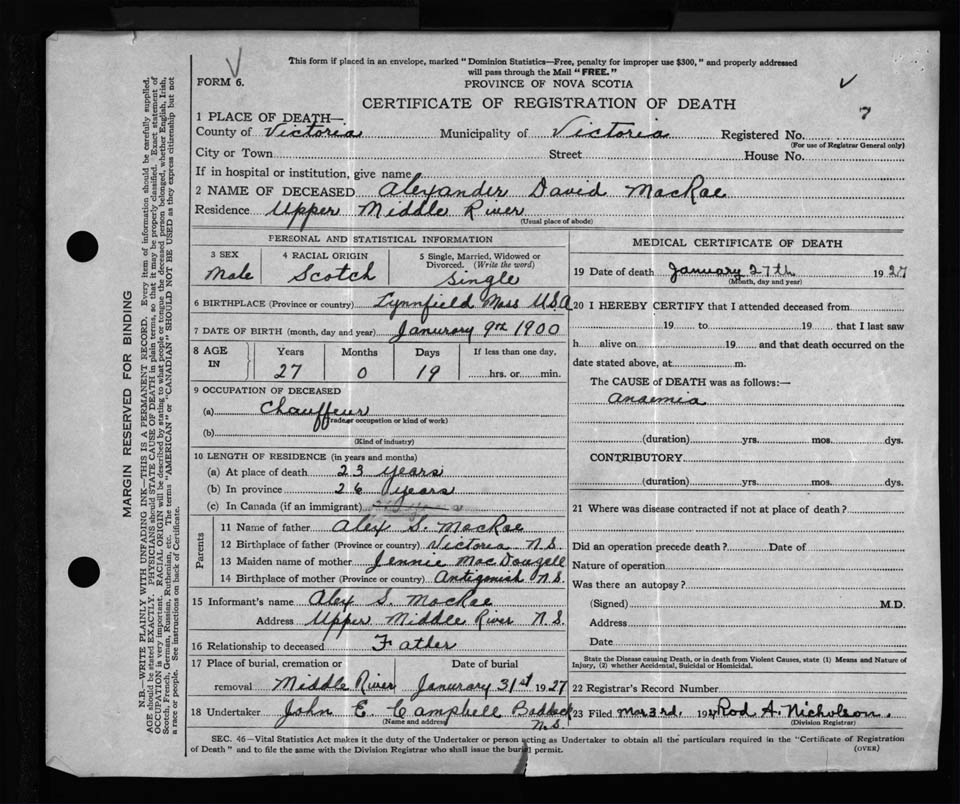 This form if placed in an envelope, marked "Dominion Statistics—Free, penalty for improper use $300," and properly addressed
will pass through the Mail "FREE."
FORM 6.
PROVINCE OF NOVA SCOTIA
CERTIFICATE OF REGISTRATION OF DEATH
7
1 PLACE OF DEATH—
County of Victoria Municipality of Victoria Registered No.
(For use of Registrar General only)
City or Town Street House No.
If in hospital or institution, give name
2 NAME OF DECEASED Alexander David MacRae
Residence Upper Middle River
(Usual place of abode)
PERSONAL AND STATISTICAL INFORMATION
3 SEX 4 RACIAL ORIGIN 5 Single, Married, Widowed or
Divorced. (Write the word)
Male Scotch Single
6 BIRTHPLACE (Province or country) Lynnfield Mass USA
7 DATE OF BIRTH (month, day and year) Janurary 9th 1900
8 AGE IN Years Months Days If less than one day,
27 0 19 hrs. or min.
9 OCCUPATION OF DECEASED
(a) Chauffeur
(Trade or occupation or kind of work)
(b)
(Kind of industry)
10 LENGTH OF RESIDENCE (in years and months)
(a) At place of death 23 years
(b) In province 26 years
(c) In Canada (if an immigrant)
Parents
11 Name of father Alex S. MacRae
12 Birthplace of father (Province or country) Victoria N.S.
13 Maiden name of mother Jennie MacDougell
14 Birthplace of mother (Province or country) Antigonish N.S.
15 Informant's name Alex S. MacRae
Address Upper Middle River N.S.
16 Relationship to deceased Father
17 Place of burial, cremation or Date of burial
removal Middle River Janurary 31st 1927
18 Undertaker John E. Campbell Baddeck
(Name and address) N.S.
MEDICAL CERTIFICATE OF DEATH
19 Date of death January 27th 1927
(Month, day and year)
20 I HEREBY CERTIFY that I attended deceased from
19 to 19 that I last saw
h alive on 19 and that death occurred on the
date stated above, at m.
The CAUSE of DEATH was as follows:—
Anaemia
(duration) yrs. mos. dys.
CONTRIBUTORY
(duration) yrs. mos. dys.
21 Where was disease contracted if not at place of death?
Did an operation precede death? Date of
Nature of operation
Was there an autopsy?
(Signed) M.D.
Address
Date
State the Disease causing Death, or in death from Violent Causes, state (1) Means and Nature of
Injury, (2) whether Accidental, Suicidal or Homicidal.
22 Registrar's Record Number
23 Filed Mar 3rd. 192 Rod A. Nicholson.
(Division Registrar)
SEC. 46—Vital Statistics Act makes it the duty of the Undertaker or person acting as Undertaker to obtain all the particulars required in the "Certificate of Registration
of Death" and to file the same with the Division Registrar who shall issue the burial permit.
(OVER)
MARGIN RESERVED FOR BINDING
N.B.—WRITE PLAINLY WITH UNFADING INK—THIS IS A PERMANENT RECORD. Every item of information should be carefully supplied.
AGE should be stated EXACTLY. PHYSICIANS should STATE CAUSE OF DEATH in plain terms, so that it may be properly classified. Exact statement of
OCCUPATION is very important. RACIAL ORIGIN will be described by stating to what people or tongue the deceased person belonged, whether English, Irish,
Scotch, French, German, Russian, Ruthenian, etc. The terms "AMERICAN" or "CANADIAN" SHOULD NOT BE USED as they express citizenship but not
a race or people. See instructions on back of Certificate.